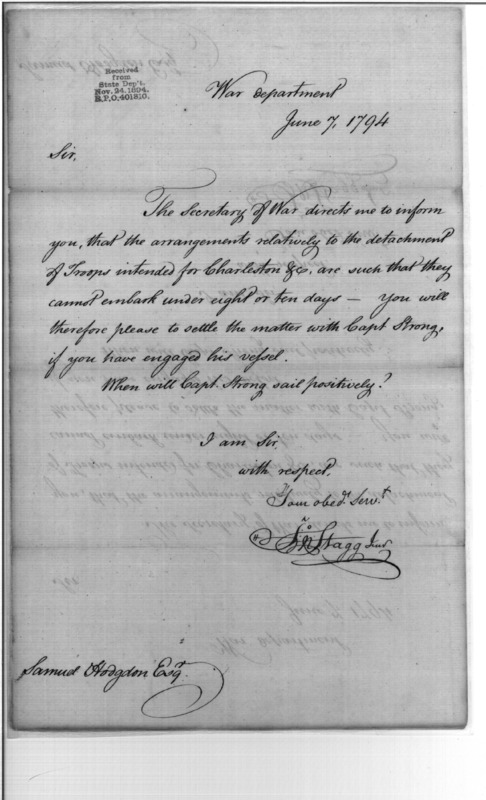 Received
from
State Dep't.
Nov. 24. 1894.
R.P.O. 401810.
War department
June 7, 1794
Sir,
The Secretary of War directs me to inform
you, that the arrangements relatively to the detachment
of Troops intended for Charleston &c, are such that they
cannot embark under eight or ten days — You will
therefore please to settle the matter with Capt Strong,
if you have engaged his vessel.
When will Capt. Strong sail positively?
I am Sir,
with respect,
Your obedt Servt
Jno Stagg Junr
Samuel Hodgdon Esqr.